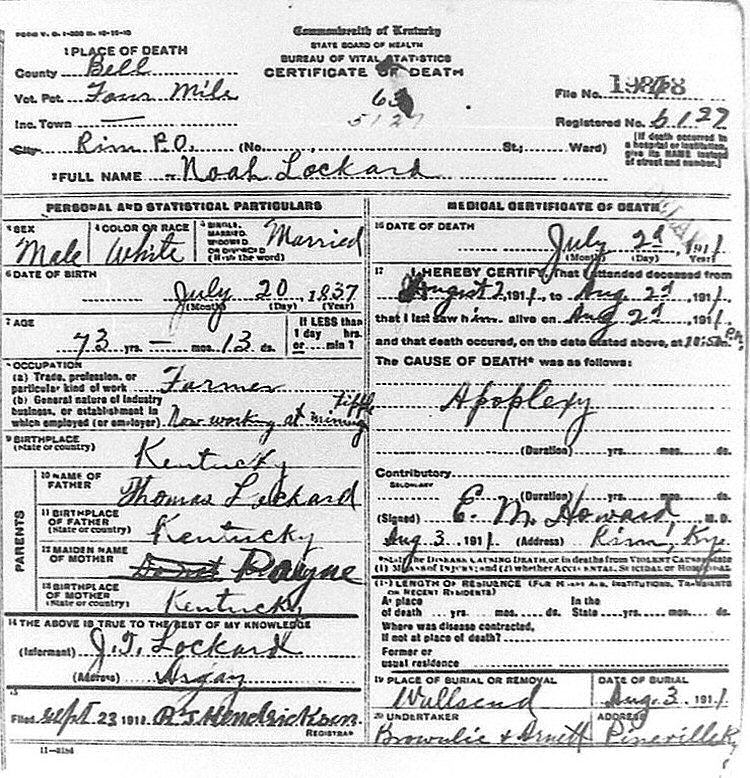 FORM V. S. 1-
Commonwealth of Kentucky
STATE BOARD OF HEALTH
BUREAU OF VITAL STATISTICS
CERTIFICATE OF DEATH
1 PLACE OF DEATH
County Bell
Vot. Pct. Four Mile
Inc. Town —
City Rim P.O. (No. St.; Ward)
63
5127
File No.
Registered No. 6127
(If death occurred in a hospital or institution, give its NAME instead of street and number.)
2 FULL NAME Noah Lockard
PERSONAL AND STATISTICAL PARTICULARS
3 SEX Male
4 COLOR OR RACE White
5 SINGLE, MARRIED, WIDOWED OR DIVORCED (Write the word) Married
6 DATE OF BIRTH
July 20, 1837
(Month) (Day) (Year)
7 AGE
73 yrs. — mos. 13 ds.
If LESS than 1 day hrs. or min?
8 OCCUPATION
(a) Trade, profession, or particular kind of work Farmer
(b) General nature of industry business, or establishment in which employed (or employer) Now working at mining
9 BIRTHPLACE (State or country) Kentucky
PARENTS
10 NAME OF FATHER Thomas Lockard
11 BIRTHPLACE OF FATHER (State or country) Kentucky
12 MAIDEN NAME OF MOTHER Payne
13 BIRTHPLACE OF MOTHER (State or country) Kentucky
14 THE ABOVE IS TRUE TO THE BEST OF MY KNOWLEDGE
(Informant) J. T. Lockard
(Address) Arjay
15
Filed Sept 23 191 R J Hendrickson
REGISTRAR
11-3184
MEDICAL CERTIFICATE OF DEATH
16 DATE OF DEATH
July 2d, 1911
(Month) (Day) (Year)
17 I HEREBY CERTIFY, That I attended deceased from
August 2, 1911, to Aug 2d, 1911,
that I last saw him alive on Aug 2d, 1911,
and that death occured, on the date stated above, at m.
The CAUSE OF DEATH* was as follows:
Apoplexy
(Duration) yrs. mos. ds.
Contributory
SECONDARY
(Duration) yrs. mos. ds.
(Signed) E. M. Howard, M.D.
Aug 3, 1911 (Address) Rim, Ky.
*State the DISEASE CAUSING DEATH, or in deaths from VIOLENT CAUSES state (1) MEANS OF INJURY; and (2) whether ACCIDENTAL, SUICIDAL or HOMICIDAL
18 LENGTH OF RESIDENCE (FOR HOSPITALS, INSTITUTIONS, TRANSIENTS OR RECENT RESIDENTS)
At place of death yrs. mos. ds. In the State yrs. mos. ds.
Where was disease contracted, if not at place of death?
Former or usual residence
19 PLACE OF BURIAL OR REMOVAL Wallsend
DATE OF BURIAL Aug. 3, 1911
20 UNDERTAKER Brownlie & Arnett
ADDRESS Pineville Ky